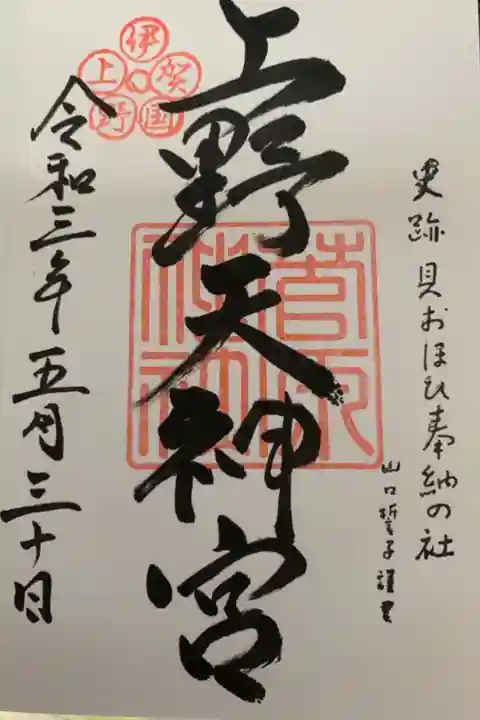 史跡 貝おほひ奉納の社
山口誓子謹書
上野天神宮
伊賀国上野
菅原神社
令和三年五月三十日